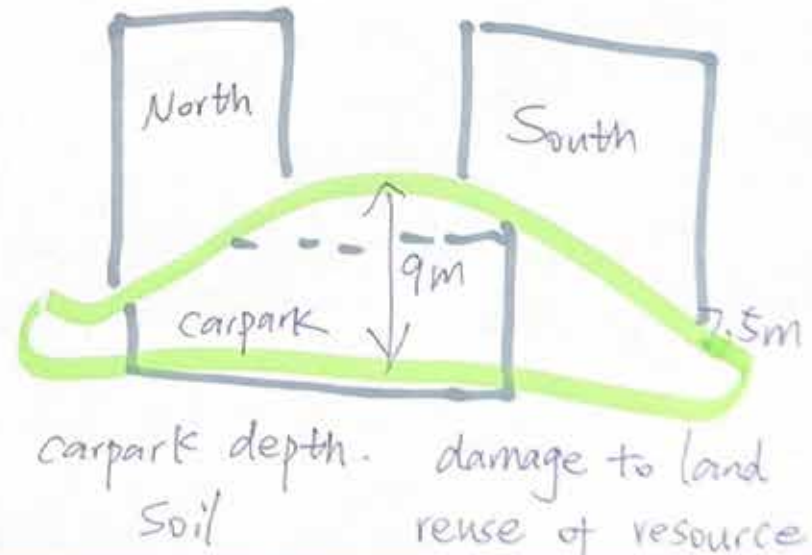 North
South
9m
carpark
7.5m
carpark depth. damage to land
soil reuse of resource